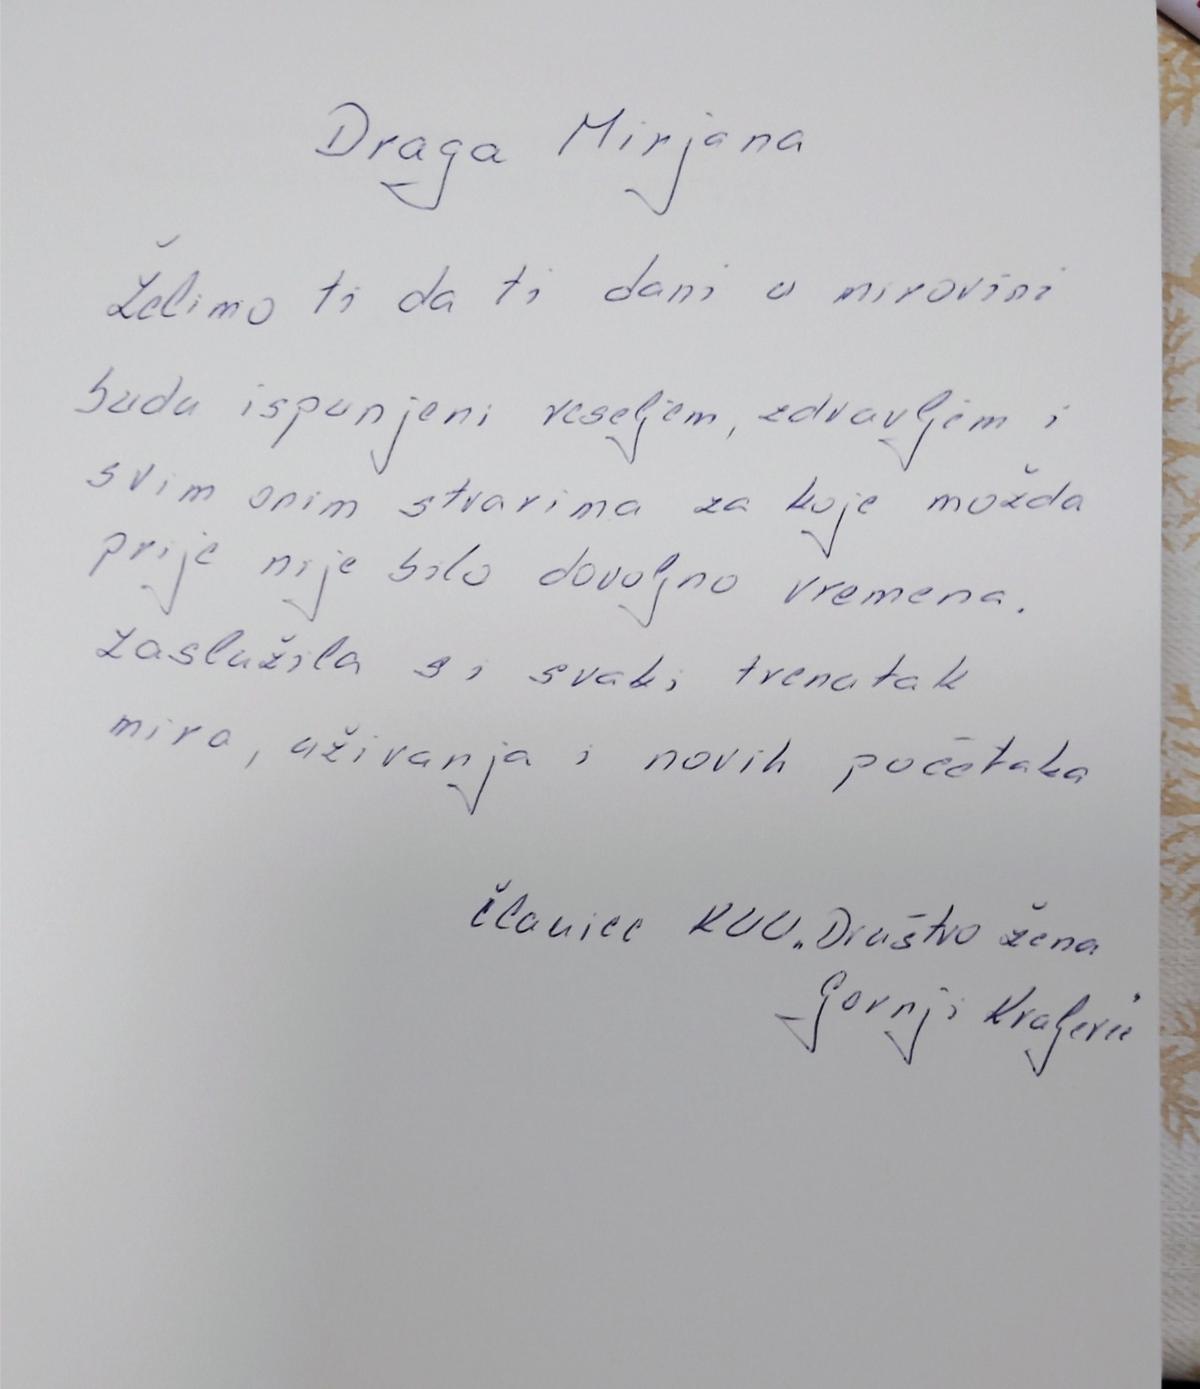 Draga Mirjana
Želimo ti da ti dani u mirovini
budu ispunjeni veseljem, zdravljem i
svim onim stvarima za koje možda
prije nije bilo dovoljno vremena.
Zaslužila si svaki trenutak
mira, uživanja i novih početaka
Članice KUU „Društvo žena
Gornji Kraljevec